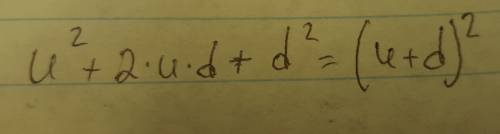 u² + 2·u·d + d² = (u+d)²